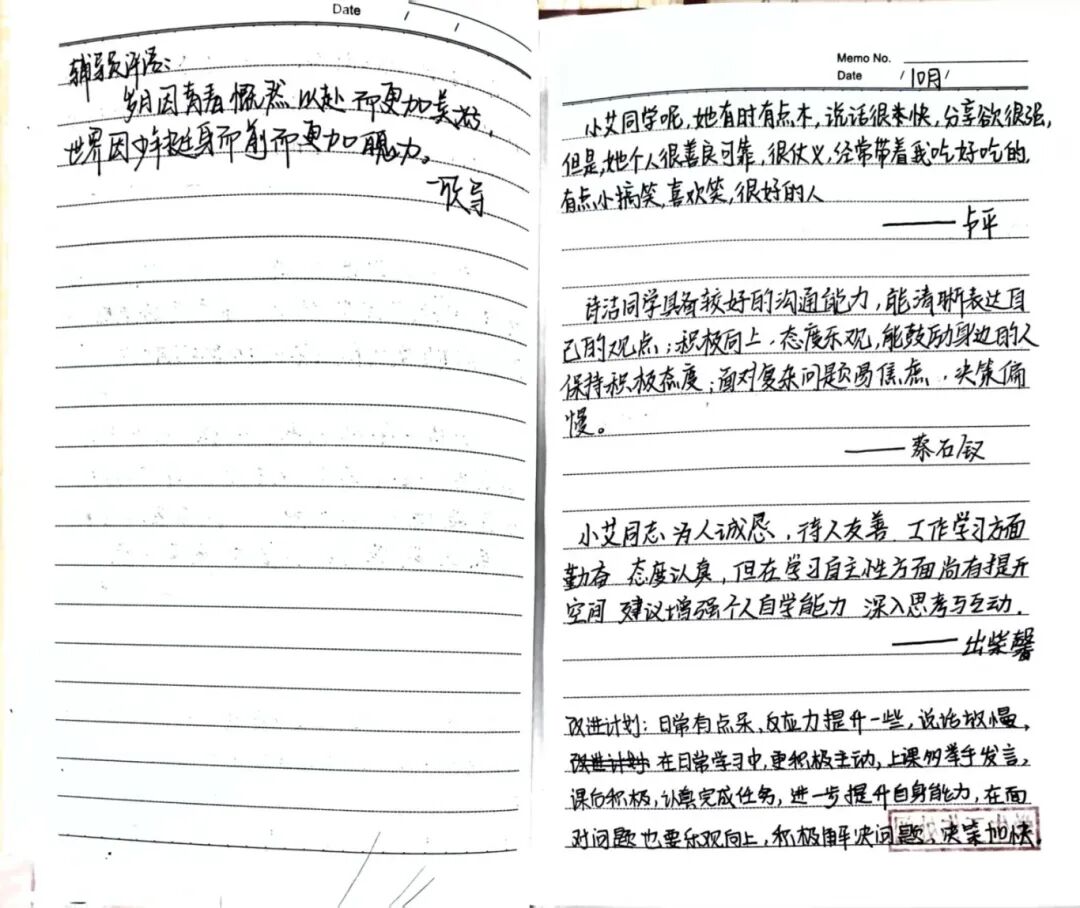 Date / /
辅导员评语：
岁月因青春慨然以赴而更加美好，
世界因少年挺身而前而更加魅力。
导
Memo No.
Date / 10月/
小艾同学呢，她有时有点木，说话很快，分享欲很强，
但是，她个人很善良可靠，很仗义，经常带着我吃好吃的，
有点小搞笑，喜欢笑，很好的人
——卢平
诗洁同学具备较好的沟通能力，能清晰表达自
己的观点；积极向上，态度乐观，能鼓励身边的人
保持积极态度；面对复杂问题易焦虑，决策偏
慢。
——蔡石钗
小艾同志为人诚恳，待人友善 工作学习方面
勤奋 态度认真，但在学习自主性方面尚有提升
空间 建议增强个人自学能力 深入思考与互动．
——出柴馨
改进计划：日常有点呆，反应力提升一些，说话放慢，
改进计划 在日常学习中，更积极主动，上课多举手发言，
课后积极，认真完成任务，进一步提升自身能力，在面
对问题也要乐观向上，积极解决问题，决策加快．